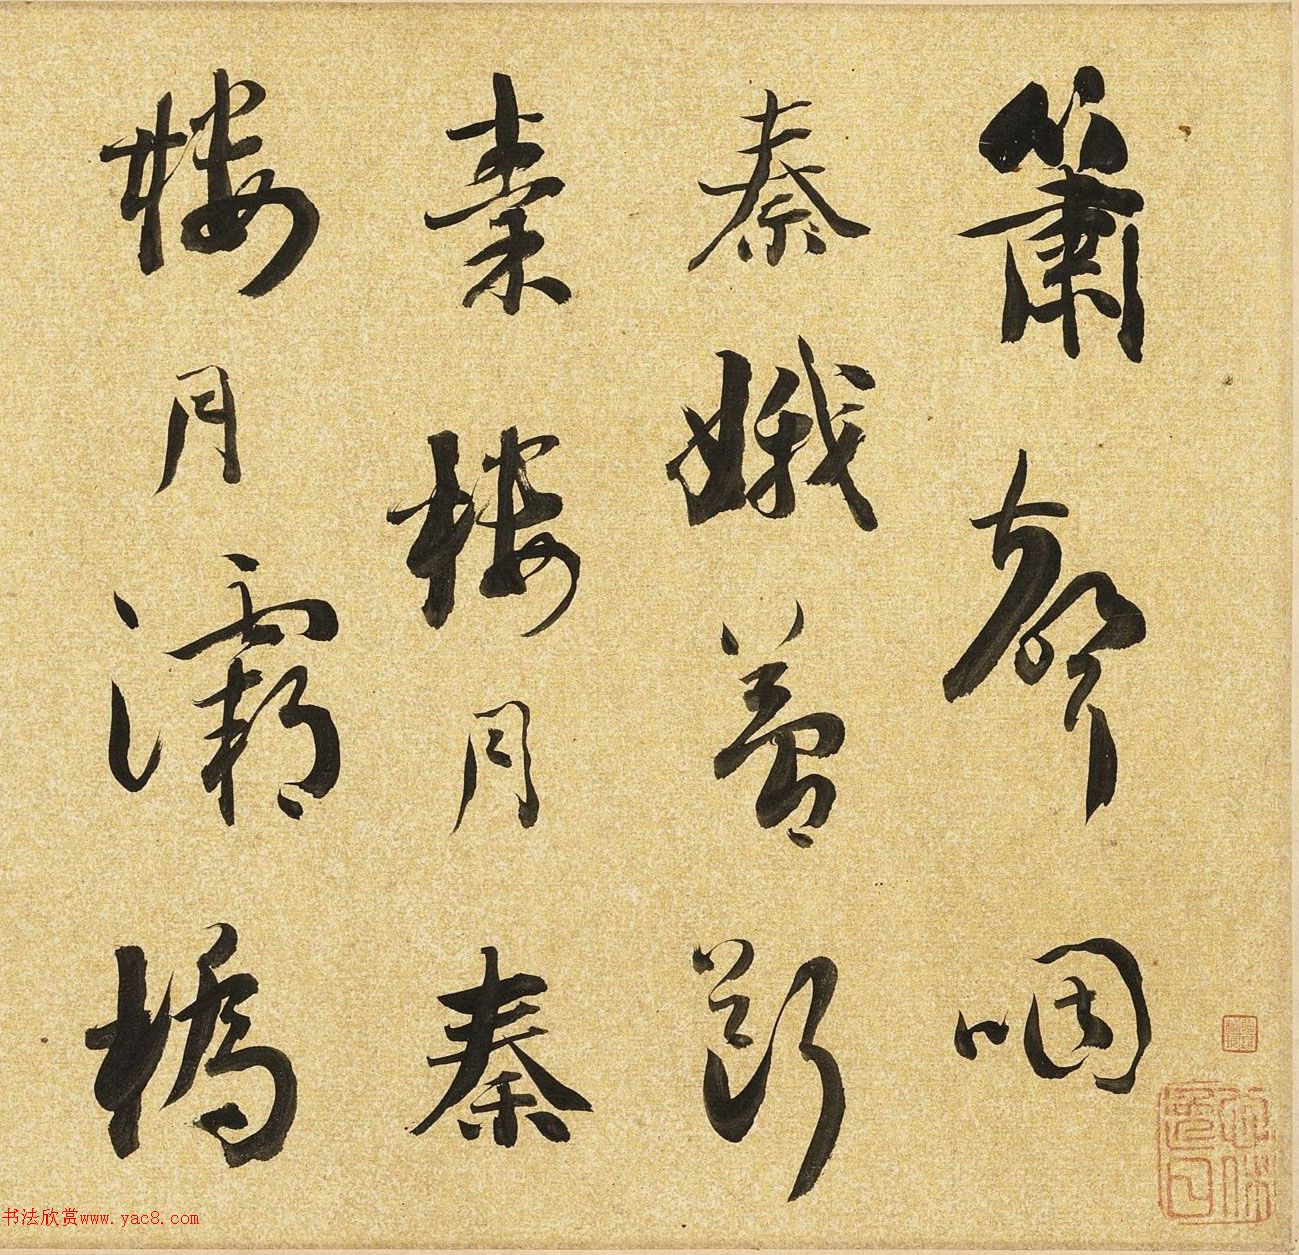 簫聲咽
秦娥夢斷
秦樓月秦
樓月灞橋
书法欣赏www.yac8.com